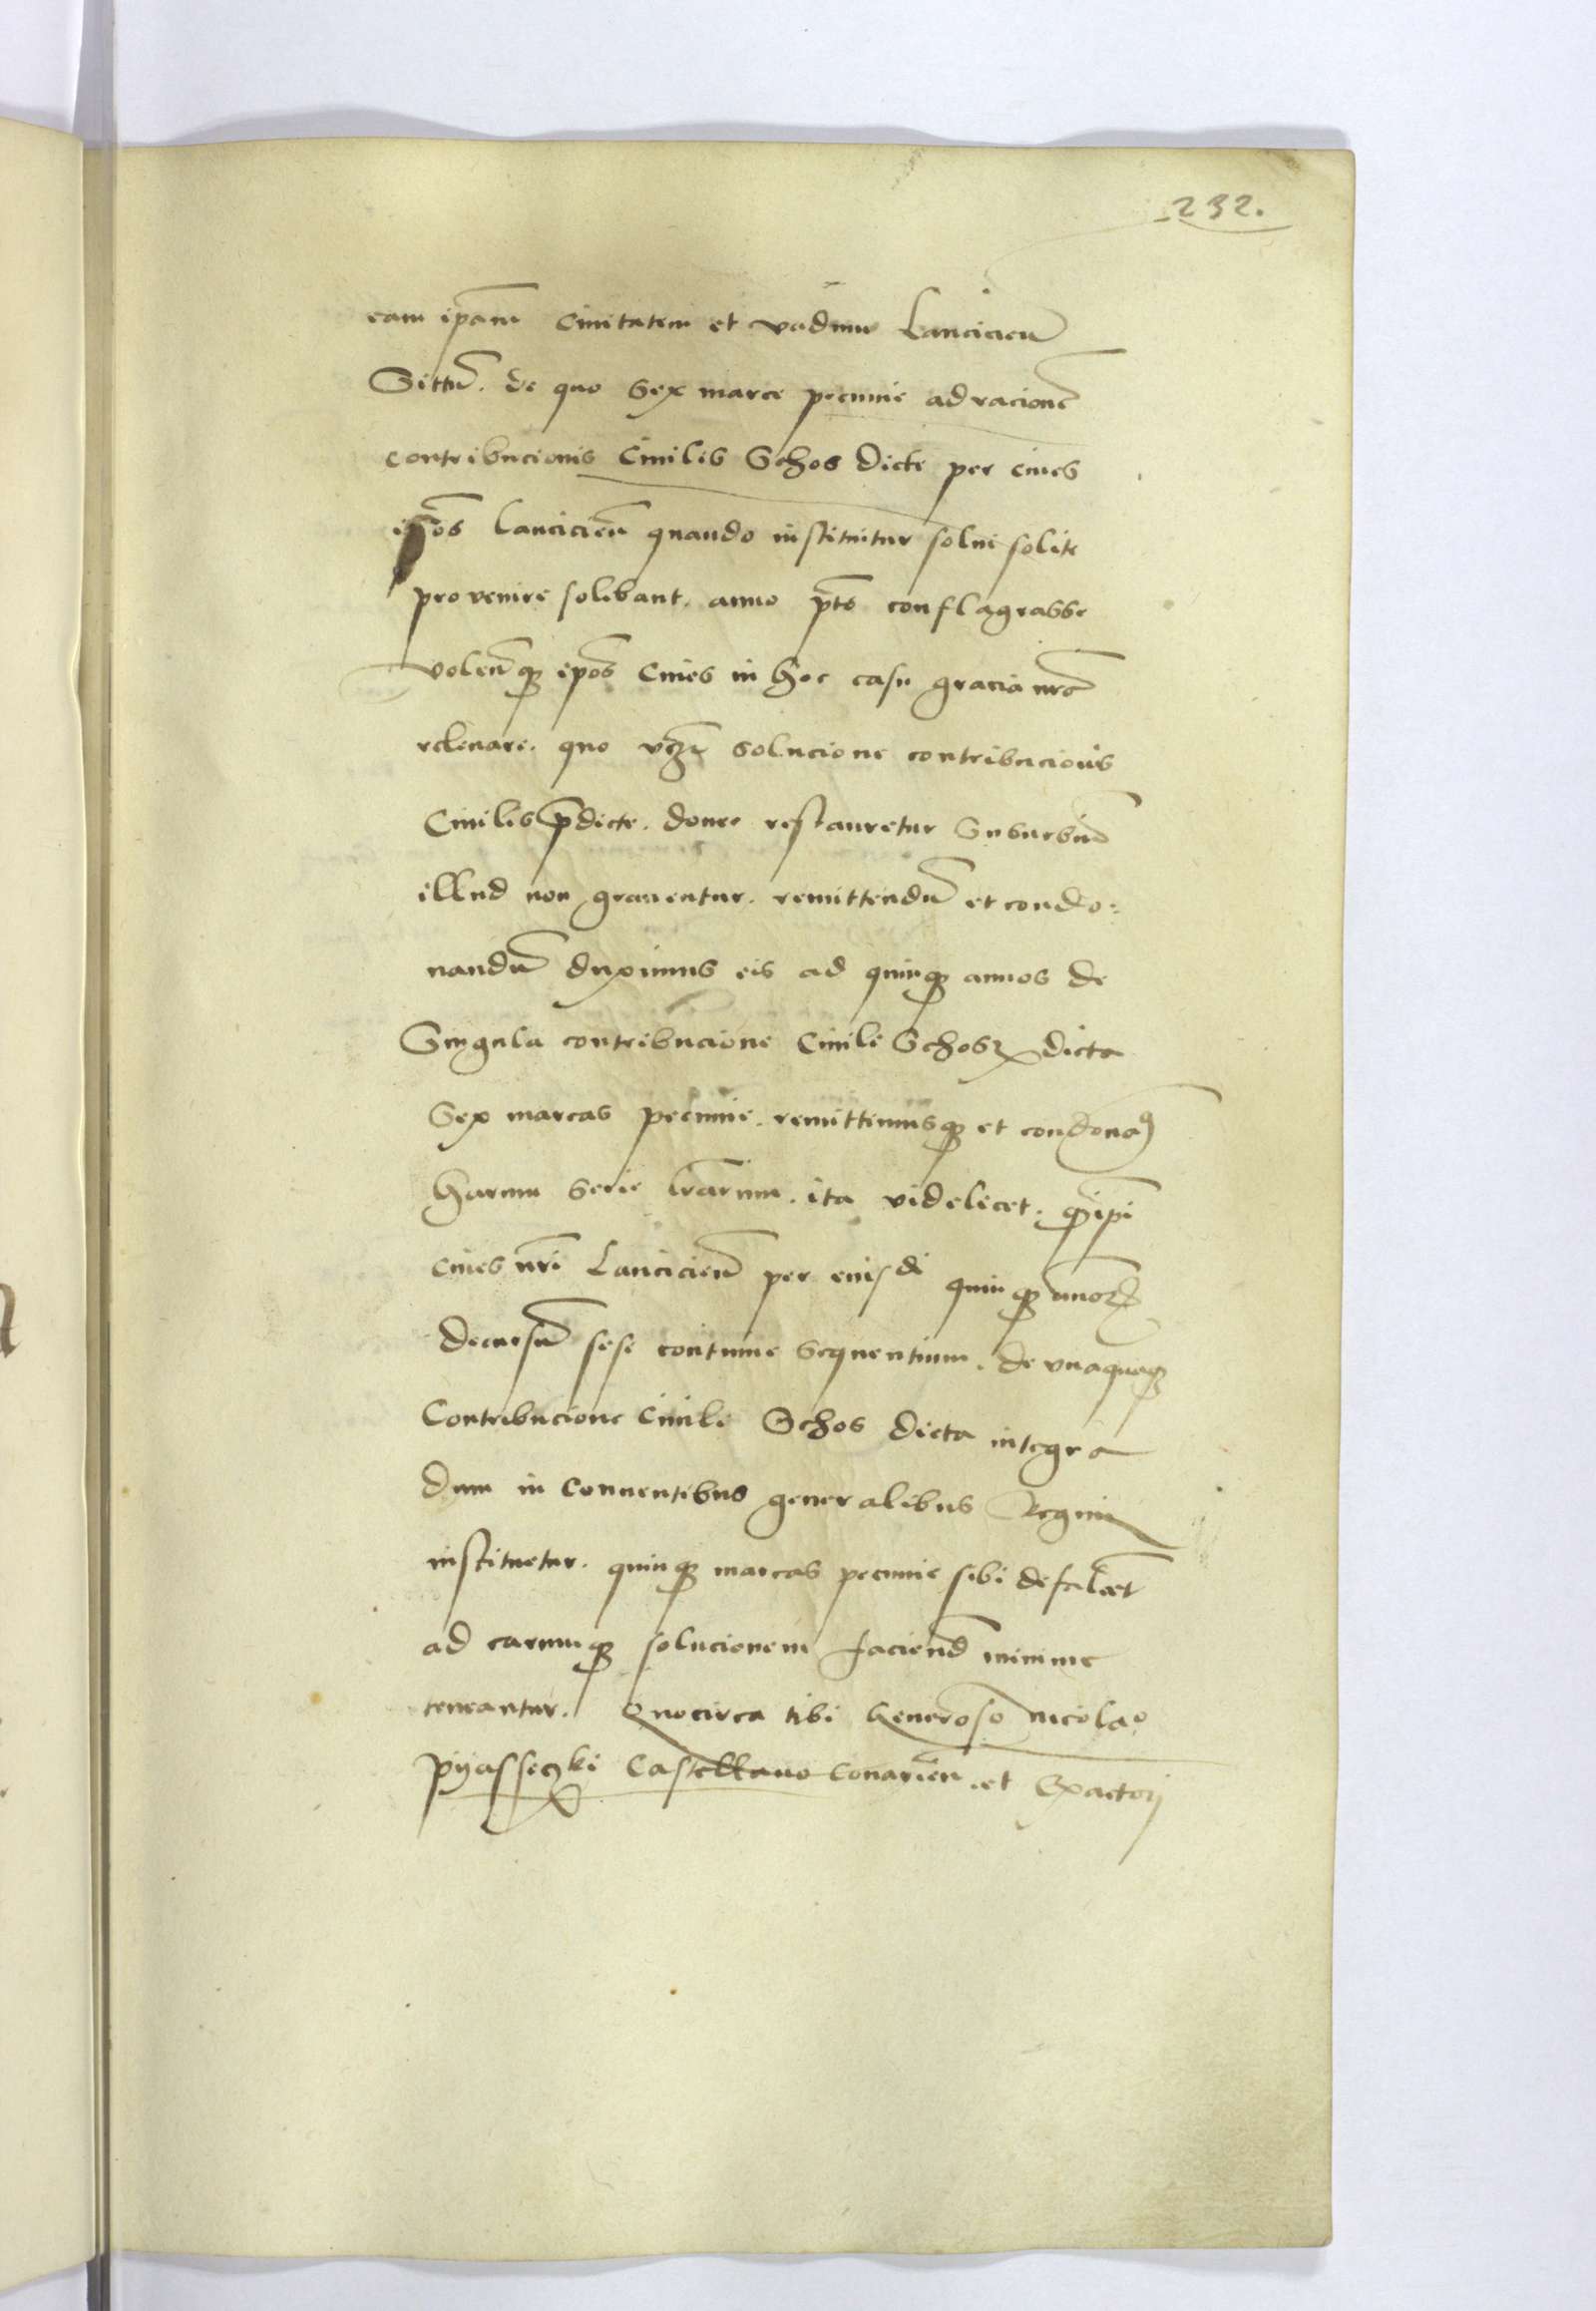 232.
eam ip̄am Ciuitatem et vadum Lancicien̄
Sittū. de quo Sex marce pecunie ad racionē
contribucionis Ciuilis Schos dicte per ciues
ip̄os Lancicien̄ quando instituitur solui solite
provenire solebant. anno p̄te conflagrasse
volen̄tq3 ip̄os Ciues in hoc casu gracia nr̄a
releuare. quo vc3 solucione contribucionis
Ciuilis p̄dicte. donec restauretur Suburbiū
illud non grauentur. remittendū et condo:
nandū duximus eis ad quinq3 annos de
Singula contribucione Ciuili Schosz dicta
Sex marcas pecunie. remittimusq3 et condonam9
harum Serie lr̄arum. ita videlicet. q̄ ip̄i
ciues nr̄i Lancicien̄ per eiusdē quinq3 annorū
decursū sese continue Sequentium. de vnaquaq3
Contribucione Ciuili Schos dicta integra
dum in Conuentibus generalibus Regni
instituetur. quinq3 marcas pecunie sibi defalcēt
ad earumq3 solucionem faciend̄ minime
teneantur. Quocirca tibi Generoso Nicolao
Pyasseczki Castellano Conarien̄. et Exactori